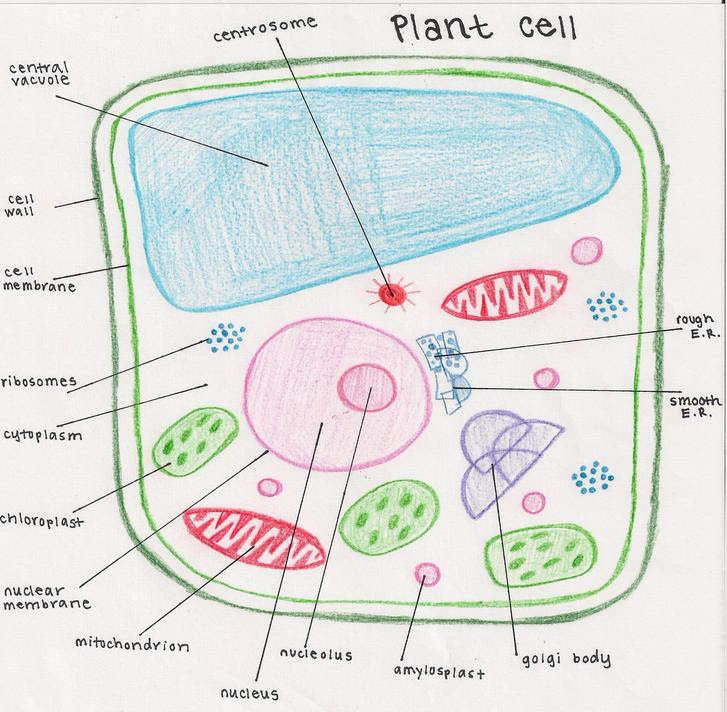 Plant cell
centrosome
central
vacuole
cell
wall
cell
membrane
ribosomes
cytoplasm
chloroplast
nuclear
membrane
mitochondrion
nucleus
nucleolus
amylosplast
golgi body
rough
E.R.
smooth
E.R.